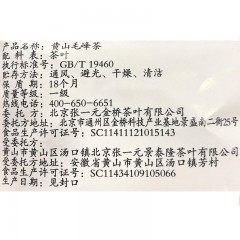 产品名称：黄山毛峰茶
配 料 表：茶叶
执行标准号：GB/T 19460
贮存方法：通风、避光、干燥、清洁
保 质 期：18个月
质量等级：一级
热线电话：400-650-6651
委 托 方：北京张一元金桥茶叶有限公司
委托方地址：北京市通州区金桥科技产业基地景盛南二街25号
食品生产许可证号：SC11411121015143
受委托方：
黄山市黄山区汤口镇北京张一元景泰隆茶叶有限公司
受委托方地址：安徽省黄山市黄山区汤口镇芳村
食品生产许可证号：SC11434109105066
生产日期：见封口